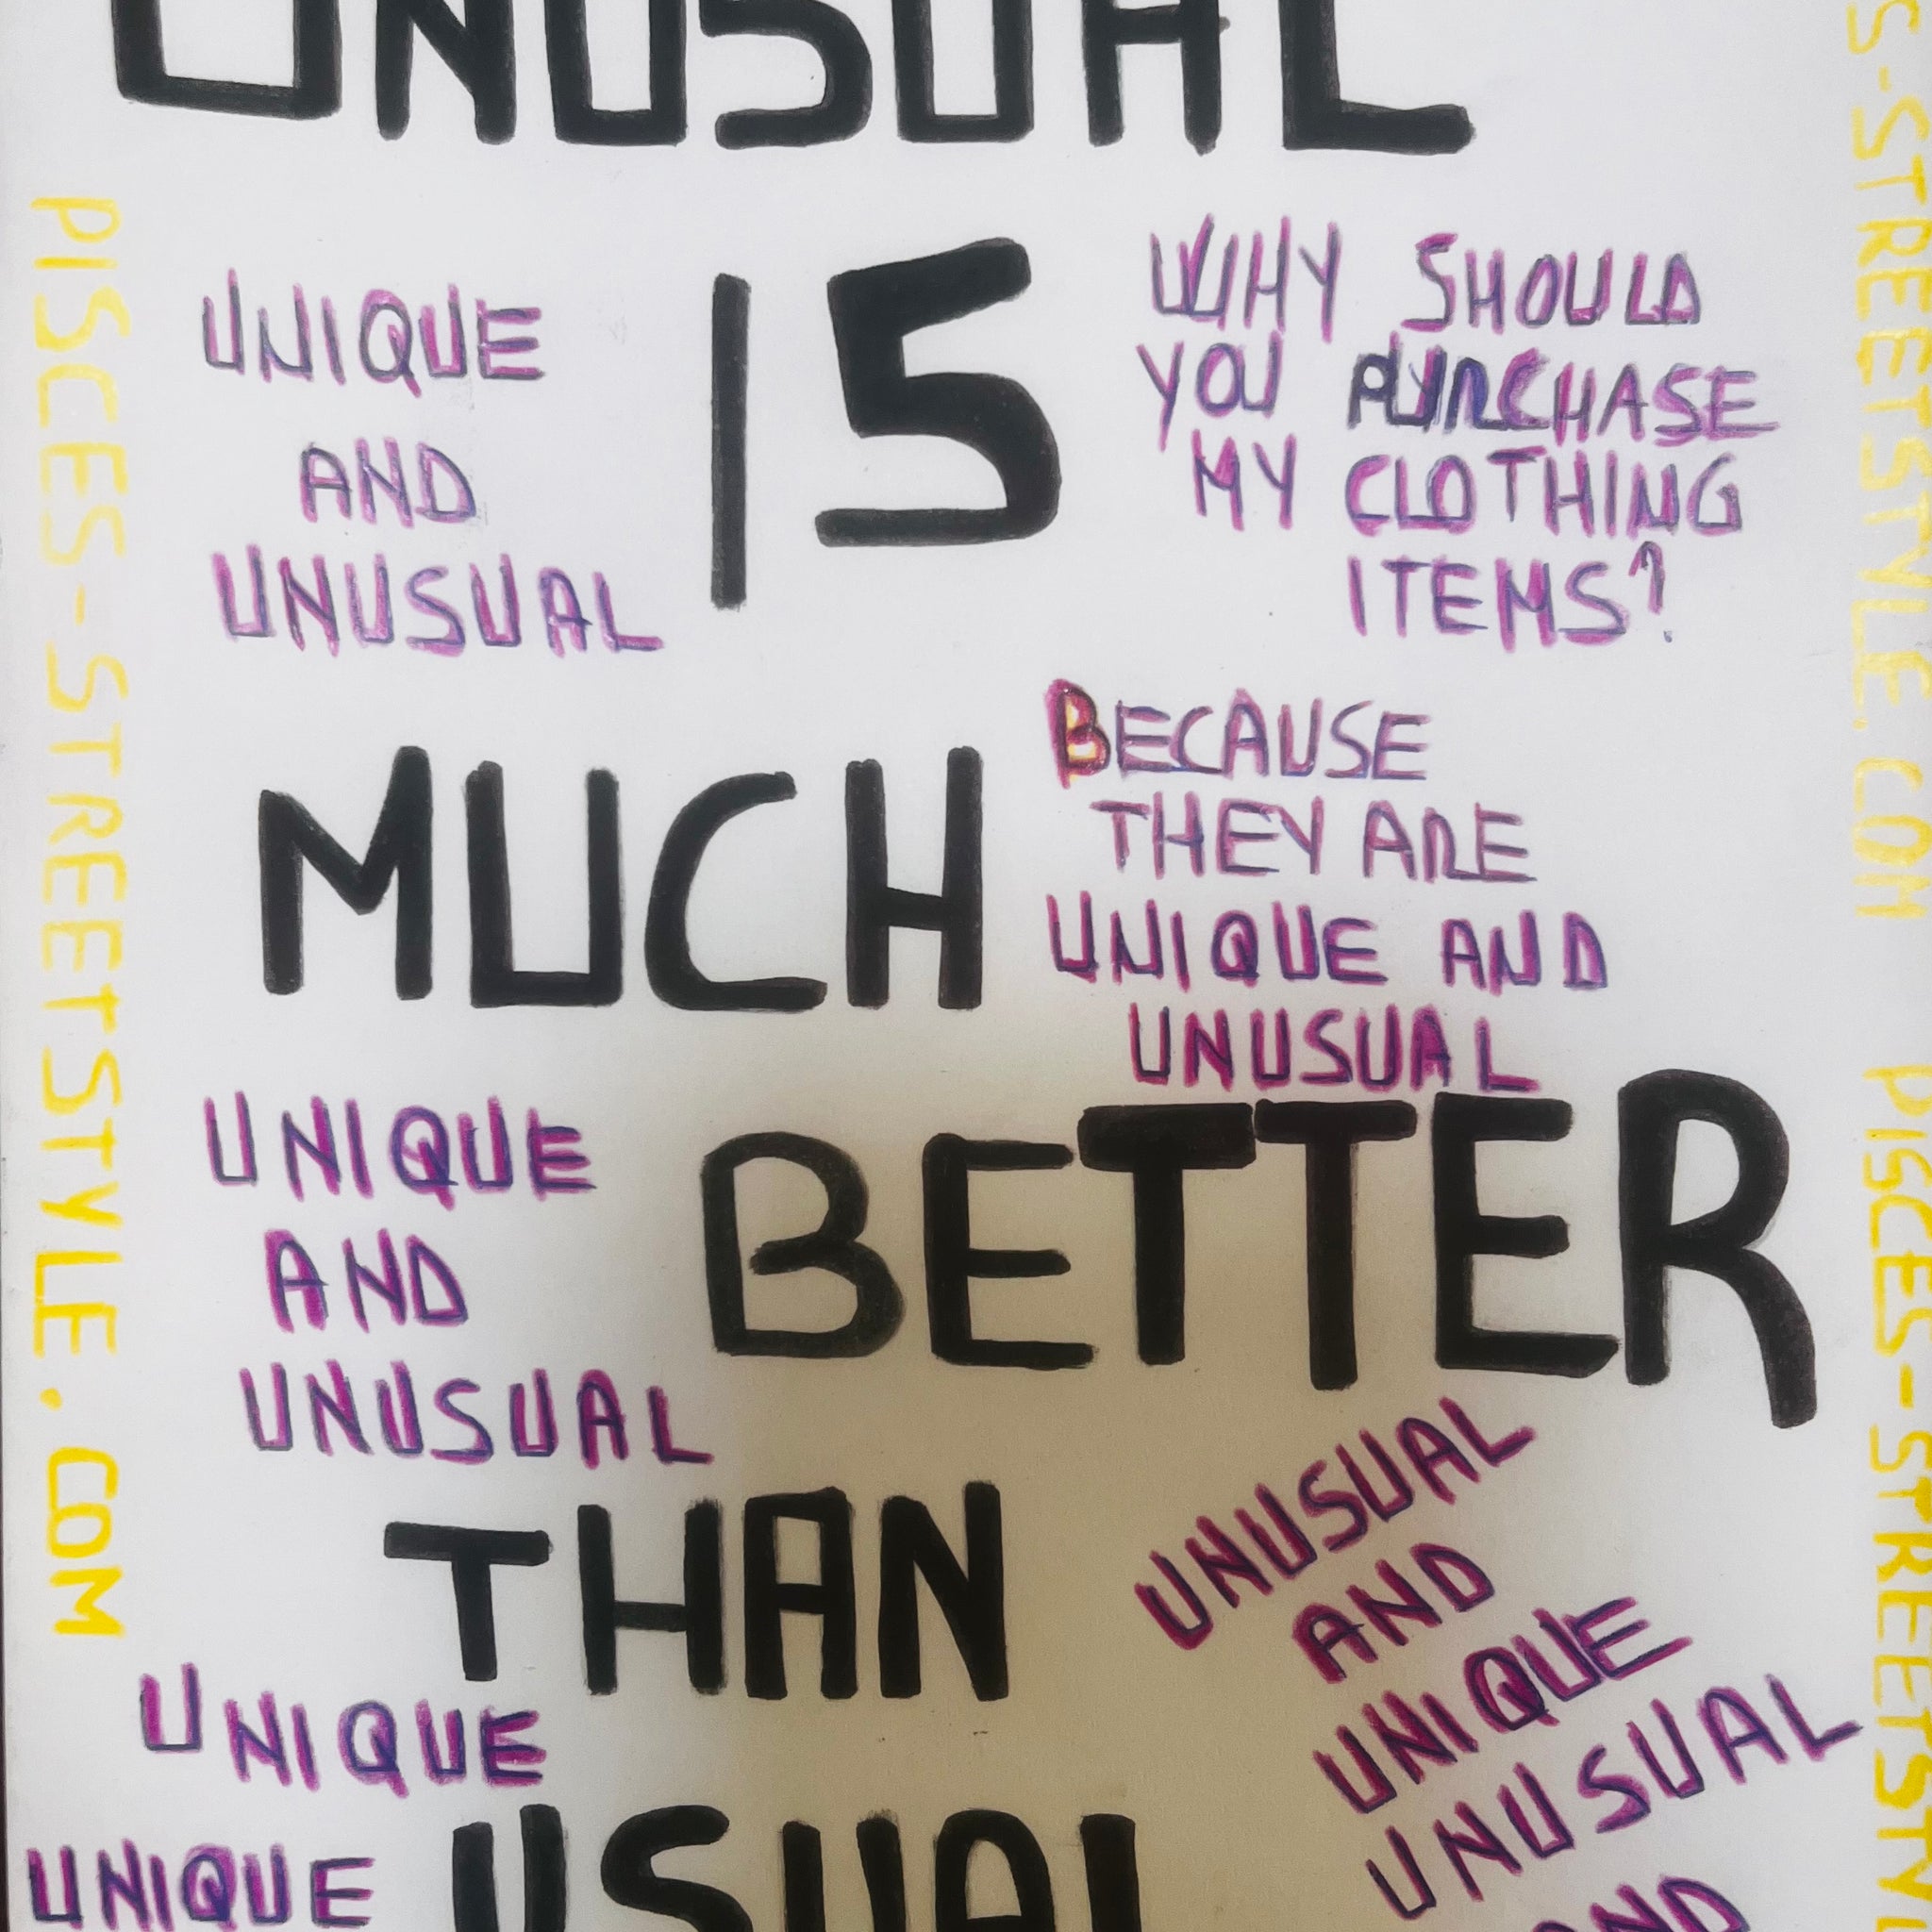 UNUSUAL
IS
MUCH
BETTER
THAN
USUAL
UNIQUE
AND
UNUSUAL
WHY SHOULD
YOU PURCHASE
MY CLOTHING
ITEMS?
BECAUSE
THEY ARE
UNIQUE AND
UNUSUAL
UNIQUE
AND
UNUSUAL
UNUSUAL
AND
UNIQUE
UNUSUAL
AND
UNIQUE
UNIQUE
PISCES-STREETSTYLE.COM
S-STREETSTYLE.COM
PISCES-STREETSTY